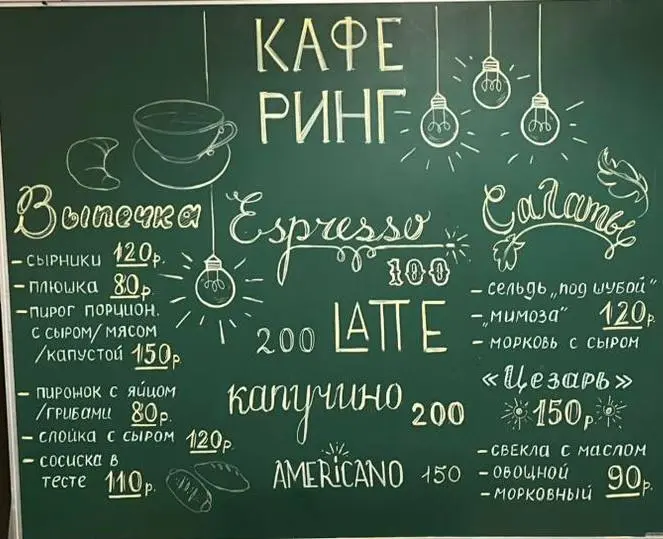 КАФЕ
РИНГ
Выпечка
- сырники 120р.
- плюшка 80р.
- пирог порцион.
с сыром/мясом
/капустой 150р
- пирожок с яйцом
/грибами 80р.
- слойка с сыром 120р.
- сосиска в
тесте 110р.
Espresso
100
200 LATTE
капучино 200
AMERICANO 150
Салаты
- сельдь „под шубой"
- „мимоза" 120р.
- морковь с сыром
«Цезарь»
150р.
- свекла с маслом
- овощной 90р.
- морковный